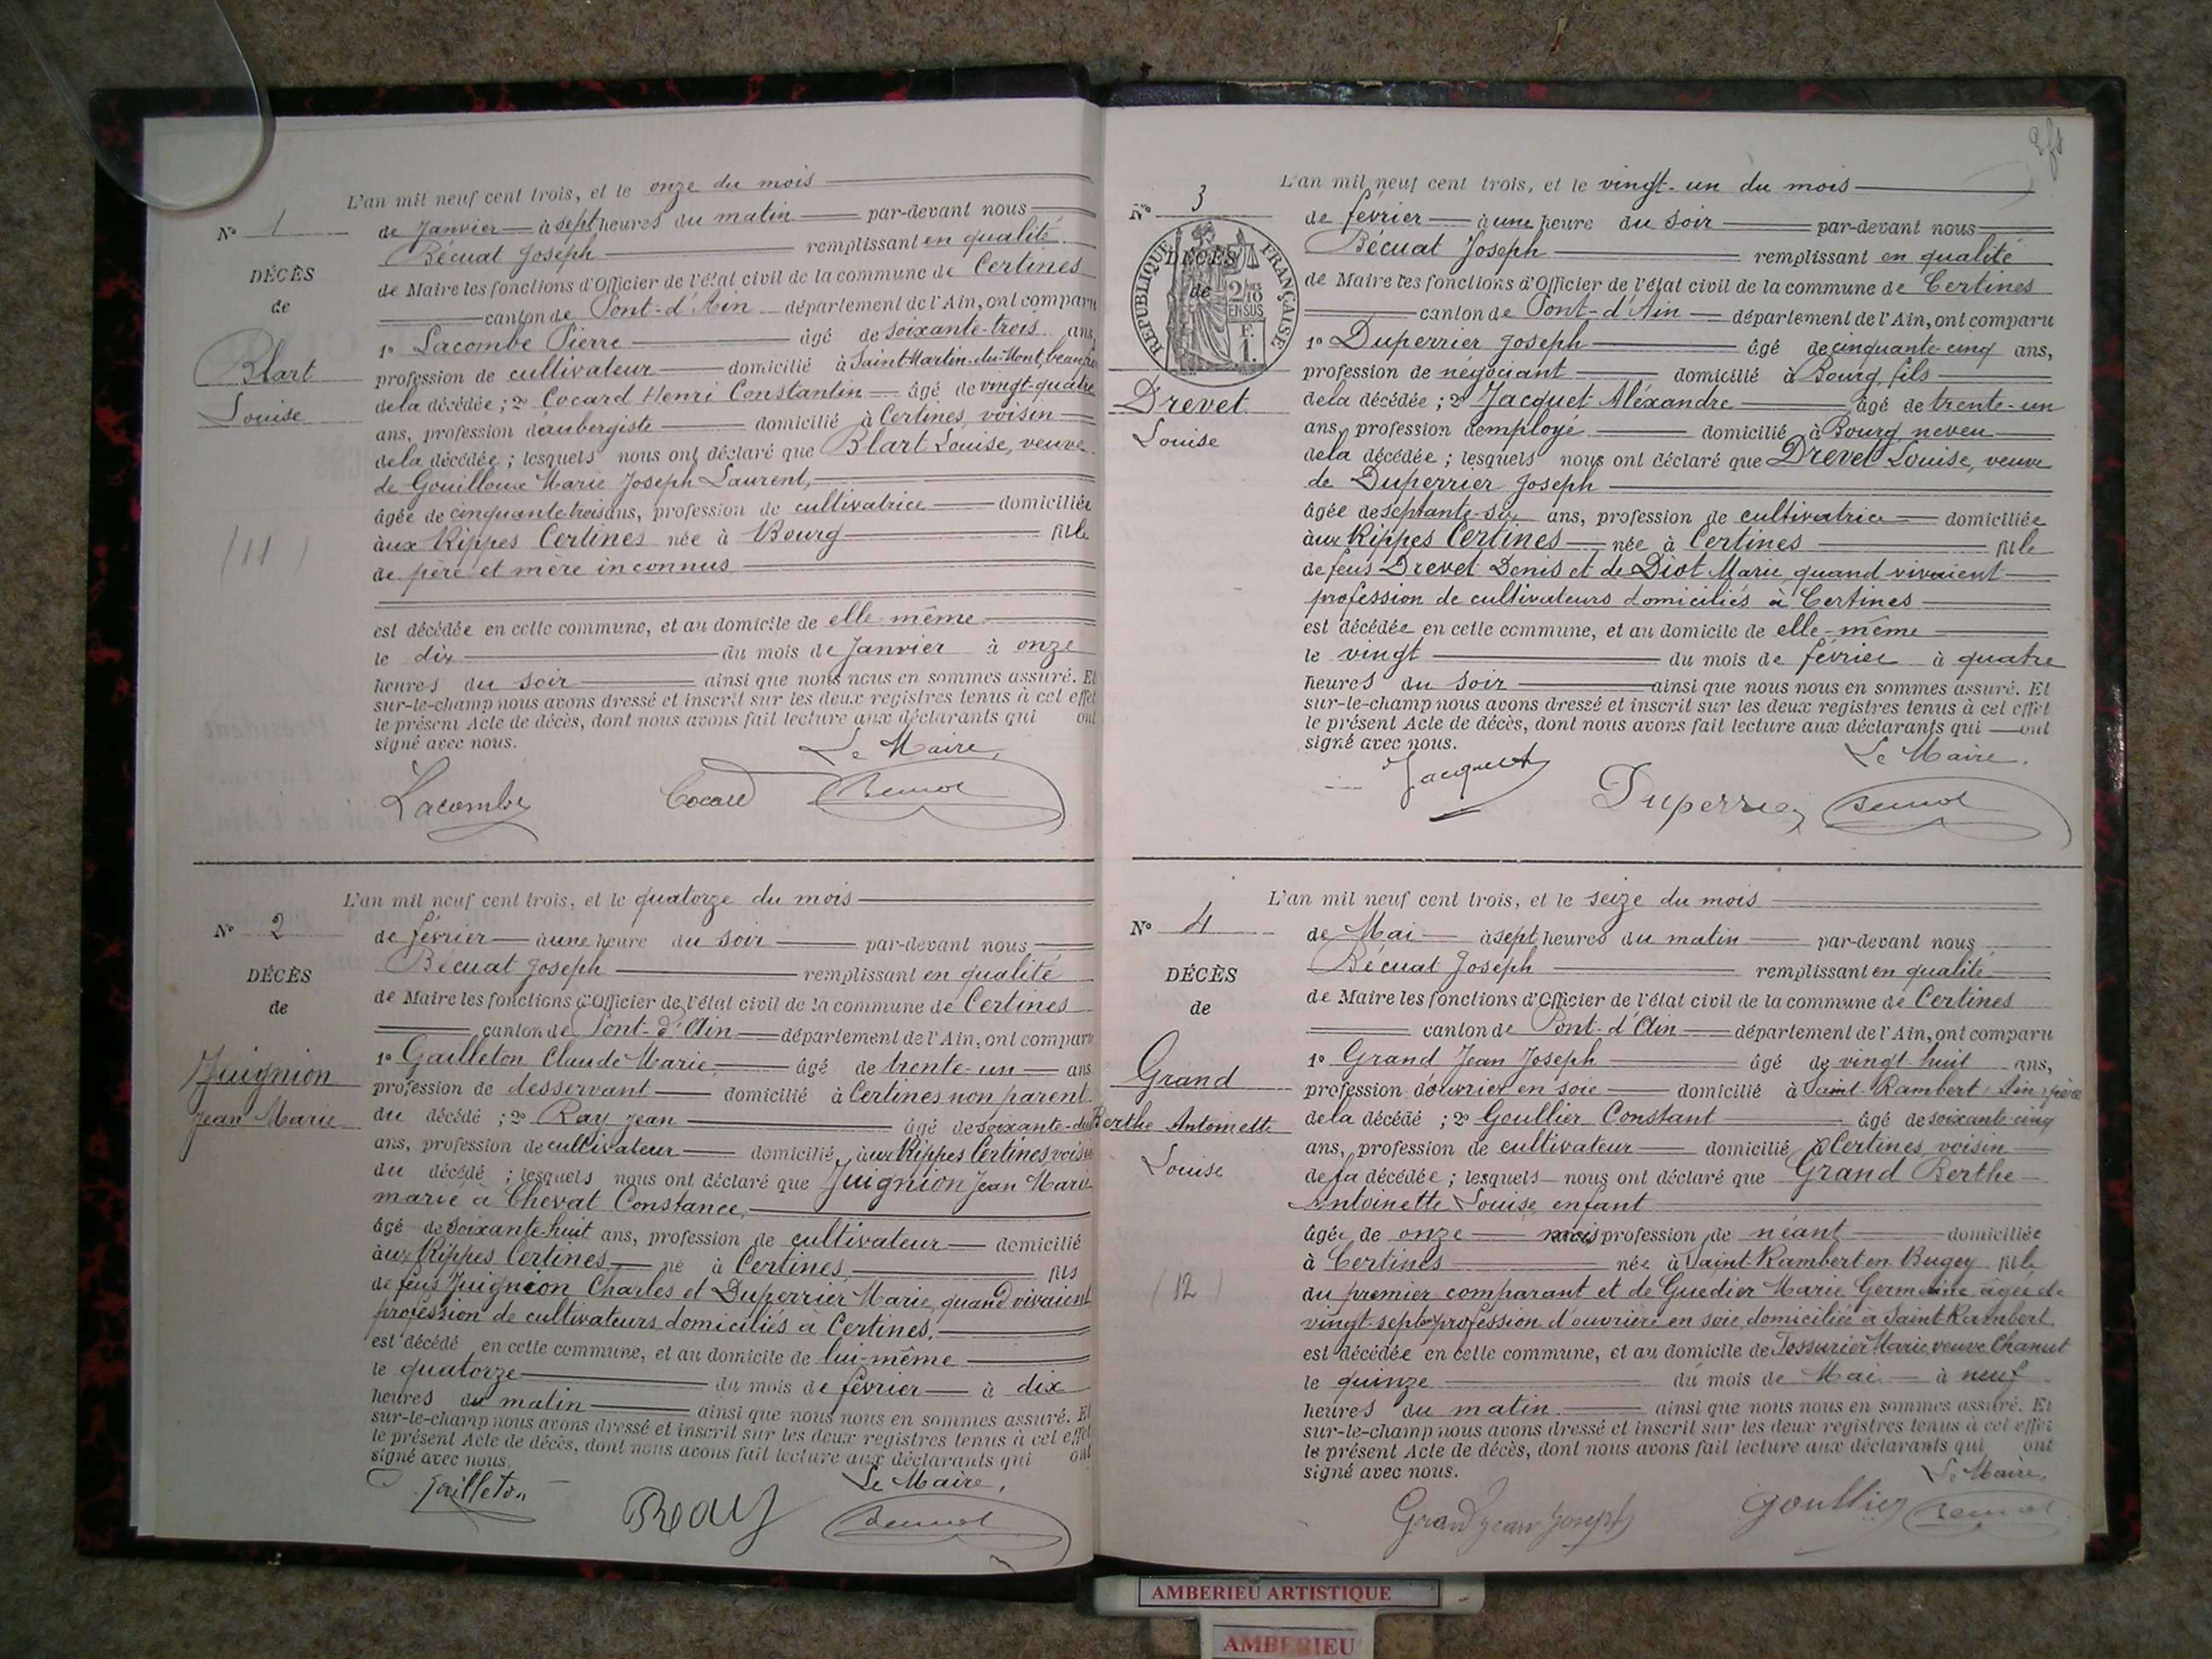 L'an mil neuf cent trois, et le onze du mois
N° 1
de Janvier à sept heures du matin par-devant nous
Bécuat Joseph remplissant en qualité
DÉCÈS
de Maire les fonctions d'Officier de l'état civil de la commune de Certines
de
canton de Pont-d'Ain département de l'Ain, ont comparu
1° Lacombe Pierre âgé de soixante-trois ans,
Blart
profession de cultivateur domicilié à Saint-Martin-du-Mont, beau-frère
Louise
de la décédée ; 2° Cocard Henri Constantin âgé de vingt-quatre
ans, profession d'aubergiste domicilié à Certines, voisin
de la décédée ; lesquels nous ont déclaré que Blart Louise, veuve
de Gouilloux Marie Joseph Laurent,
âgée de cinquante-trois ans, profession de cultivatrice domiciliée
aux Rippes Certines née à Bourg fille
(11)
de père et mère inconnus
est décédée en cette commune, et au domicile de elle même
le dix du mois de Janvier à onze
heures du soir ainsi que nous nous en sommes assuré. Et
sur-le-champ nous avons dressé et inscrit sur les deux registres tenus à cet effet
le présent Acte de décès, dont nous avons fait lecture aux déclarants qui ont
signé avec nous.
Le Maire,
Lacombe Cocard
L'an mil neuf cent trois, et le quatorze du mois
N° 2
de février à une heure du soir par-devant nous
Bécuat Joseph remplissant en qualité
DÉCÈS
de Maire les fonctions d'Officier de l'état civil de la commune de Certines
de
canton de Pont-d'Ain département de l'Ain, ont comparu
1° Gailleton Claude Marie, âgé de trente-un ans
Juignion
profession de desservant domicilié à Certines non parent
Jean Marie
du décédé ; 2° Ray Jean âgé de soixante-dix
ans, profession de cultivateur domicilié aux Rippes Certines, voisin
du décédé ; lesquels nous ont déclaré que Juignion Jean Marie
marié à Chevat Constance,
âgé de soixante-huit ans, profession de cultivateur domicilié
aux Rippes Certines né à Certines, fils
de feus Juignion Charles et Duperrier Marie, quand vivaient
profession de cultivateurs domiciliés à Certines.
est décédé en cette commune, et au domicile de lui-même
le quatorze du mois de février à dix
heures du matin ainsi que nous nous en sommes assuré. Et
sur-le-champ nous avons dressé et inscrit sur les deux registres tenus à cet effet
le présent Acte de décès, dont nous avons fait lecture aux déclarants qui ont
signé avec nous.
Le Maire,
Gailleton Ray
L'an mil neuf cent trois, et le vingt-un du mois
N° 3
de février à une heure du soir par-devant nous
Bécuat Joseph remplissant en qualité
DÉCÈS
de
RÉPUBLIQUE FRANÇAISE
2/10 EN SUS
F. 1.
de Maire les fonctions d'Officier de l'état civil de la commune de Certines
canton de Pont-d'Ain département de l'Ain, ont comparu
1° Duperrier Joseph âgé de cinquante-cinq ans,
profession de négociant domicilié à Bourg, fils
Drevet
de la décédée ; 2° Jacquet Aléxandre âgé de trente-un
Louise
ans, profession d'employé domicilié à Bourg neveu
de la décédée ; lesquels nous ont déclaré que Drevet Louise, veuve
de Duperrier Joseph
âgée de septante-six ans, profession de cultivatrice domiciliée
aux Rippes Certines née à Certines fille
de feus Drevet Denis et de Diot Marie, quand vivaient
profession de cultivateurs domiciliés à Certines
est décédée en cette commune, et au domicile de elle-même
le vingt du mois de février à quatre
heures du soir ainsi que nous nous en sommes assuré. Et
sur-le-champ nous avons dressé et inscrit sur les deux registres tenus à cet effet
le présent Acte de décès, dont nous avons fait lecture aux déclarants qui ont
signé avec nous.
Le Maire.
Jacquet Duperrier
L'an mil neuf cent trois, et le seize du mois
N° 4
de Mai à sept heures du matin par-devant nous
Bécuat Joseph remplissant en qualité
DÉCÈS
de Maire les fonctions d'Officier de l'état civil de la commune de Certines
de
canton de Pont-d'Ain département de l'Ain, ont comparu
1° Grand Jean Joseph âgé de vingt huit ans,
Grand
profession d'ouvrier en soie domicilié à Saint-Rambert, Ain, père
Berthe Antoinette
de la décédé ; 2° Goullier Constant âgé de soixante cinq
ans, profession de cultivateur domicilié à Certines, voisin
Louise
de la décédée ; lesquels nous ont déclaré que Grand Berthe
Antoinette Louise enfant
âgée de onze mois profession de néant domiciliée
à Certines née à Saint-Rambert en Bugey fille
(12)
du premier comparant et de Guedier Marie Germaine âgée de
vingt-sept ans profession d'ouvrière en soie, domiciliée à Saint Rambert
est décédée en cette commune, et au domicile de Tessurier Marie, veuve Chanut
le quinze du mois de Mai à neuf
heures du matin ainsi que nous nous en sommes assuré. Et
sur-le-champ nous avons dressé et inscrit sur les deux registres tenus à cet effet
le présent Acte de décès, dont nous avons fait lecture aux déclarants qui ont
signé avec nous.
Le Maire,
Grand Jean Joseph Goullier
AMBERIEU ARTISTIQUE
AMBERIEU